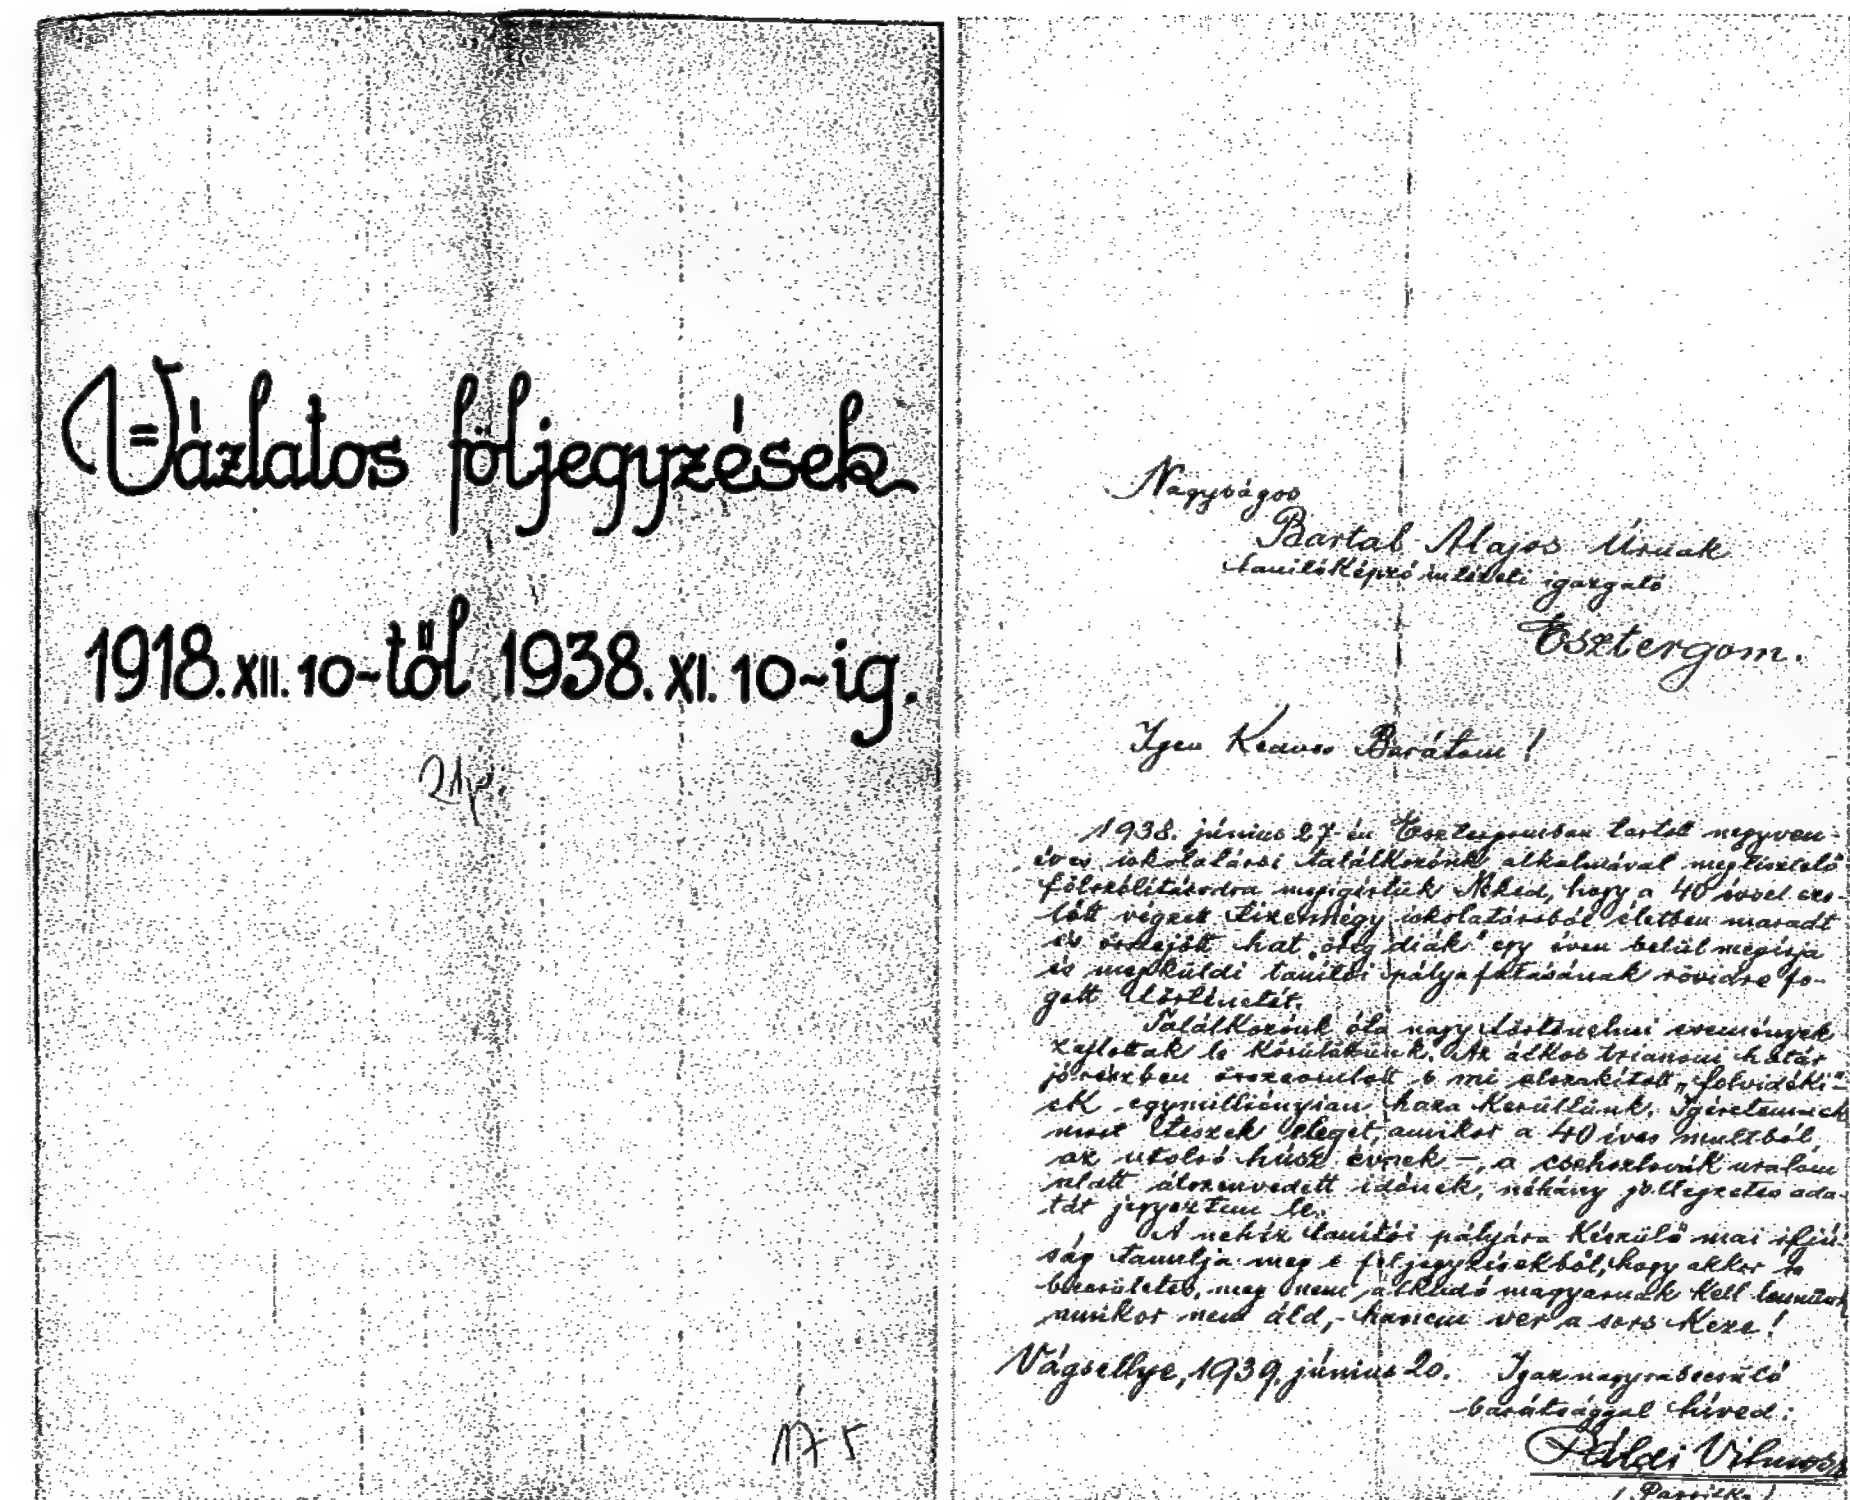 Vázlatos följegyzések
1918. XII. 10-től 1938. XI. 10-ig.
21p.
Nagyságos
Bartal Alajos Úrnak
tanítóképző intézeti igazgató
Esztergom.
Igen Kedves Barátom!
1938. június 27-én Esztergomban tartott negyven-
éves iskolatársi találkozónk alkalmával megtisztelő
fölszólításodra megígértük Néked, hogy a 40 évvel eze-
lőtt végzett tizennégy iskolatársból életben maradt
és összejött hat „öreg diák" egy éven belül megírja
és megküldi tanítói pályafutásának rövidre fo-
gott történetét.
Találkozónk óta nagy történelmi események
zajlottak le körülöttünk. Az átkos trianoni határ
jórészben összeomlott s mi elszakított „felvidéki"-
ek egymilliónyian haza kerültünk. Igéretemnek
most teszek eleget, amikor a 40 éves multból
az utolsó húsz évnek –, a csehszlovák uralom
alatt átszenvedett időnek, néhány jellegzetes ada-
tát jegyeztem le.
A nehéz tanítói pályára készülő mai ifjú-
ság tanulja meg e feljegyzésekből, hogy akkor is
becsületes, meg nem alkudó magyarnak kell lennünk
amikor nem áld, - hanem ver a sors keze!
Vágsellye, 1939. június 20.
Igaz nagyrabecsülő
barátsággal híved:
Páldi Vilmos